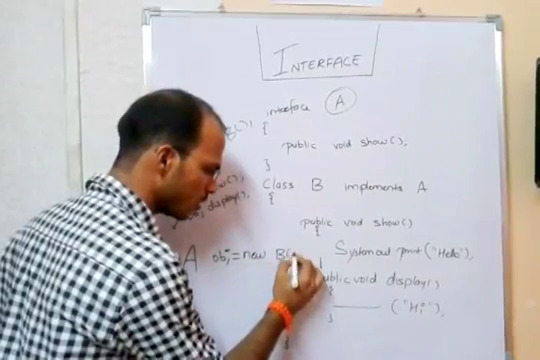 INTERFACE
interface A
{
public void show();
}
Class B implements A
{
public void show()
{
System out print ("Hello");
}
public void display()
{
("Hi");
}
show();
display();
A obj = new B(